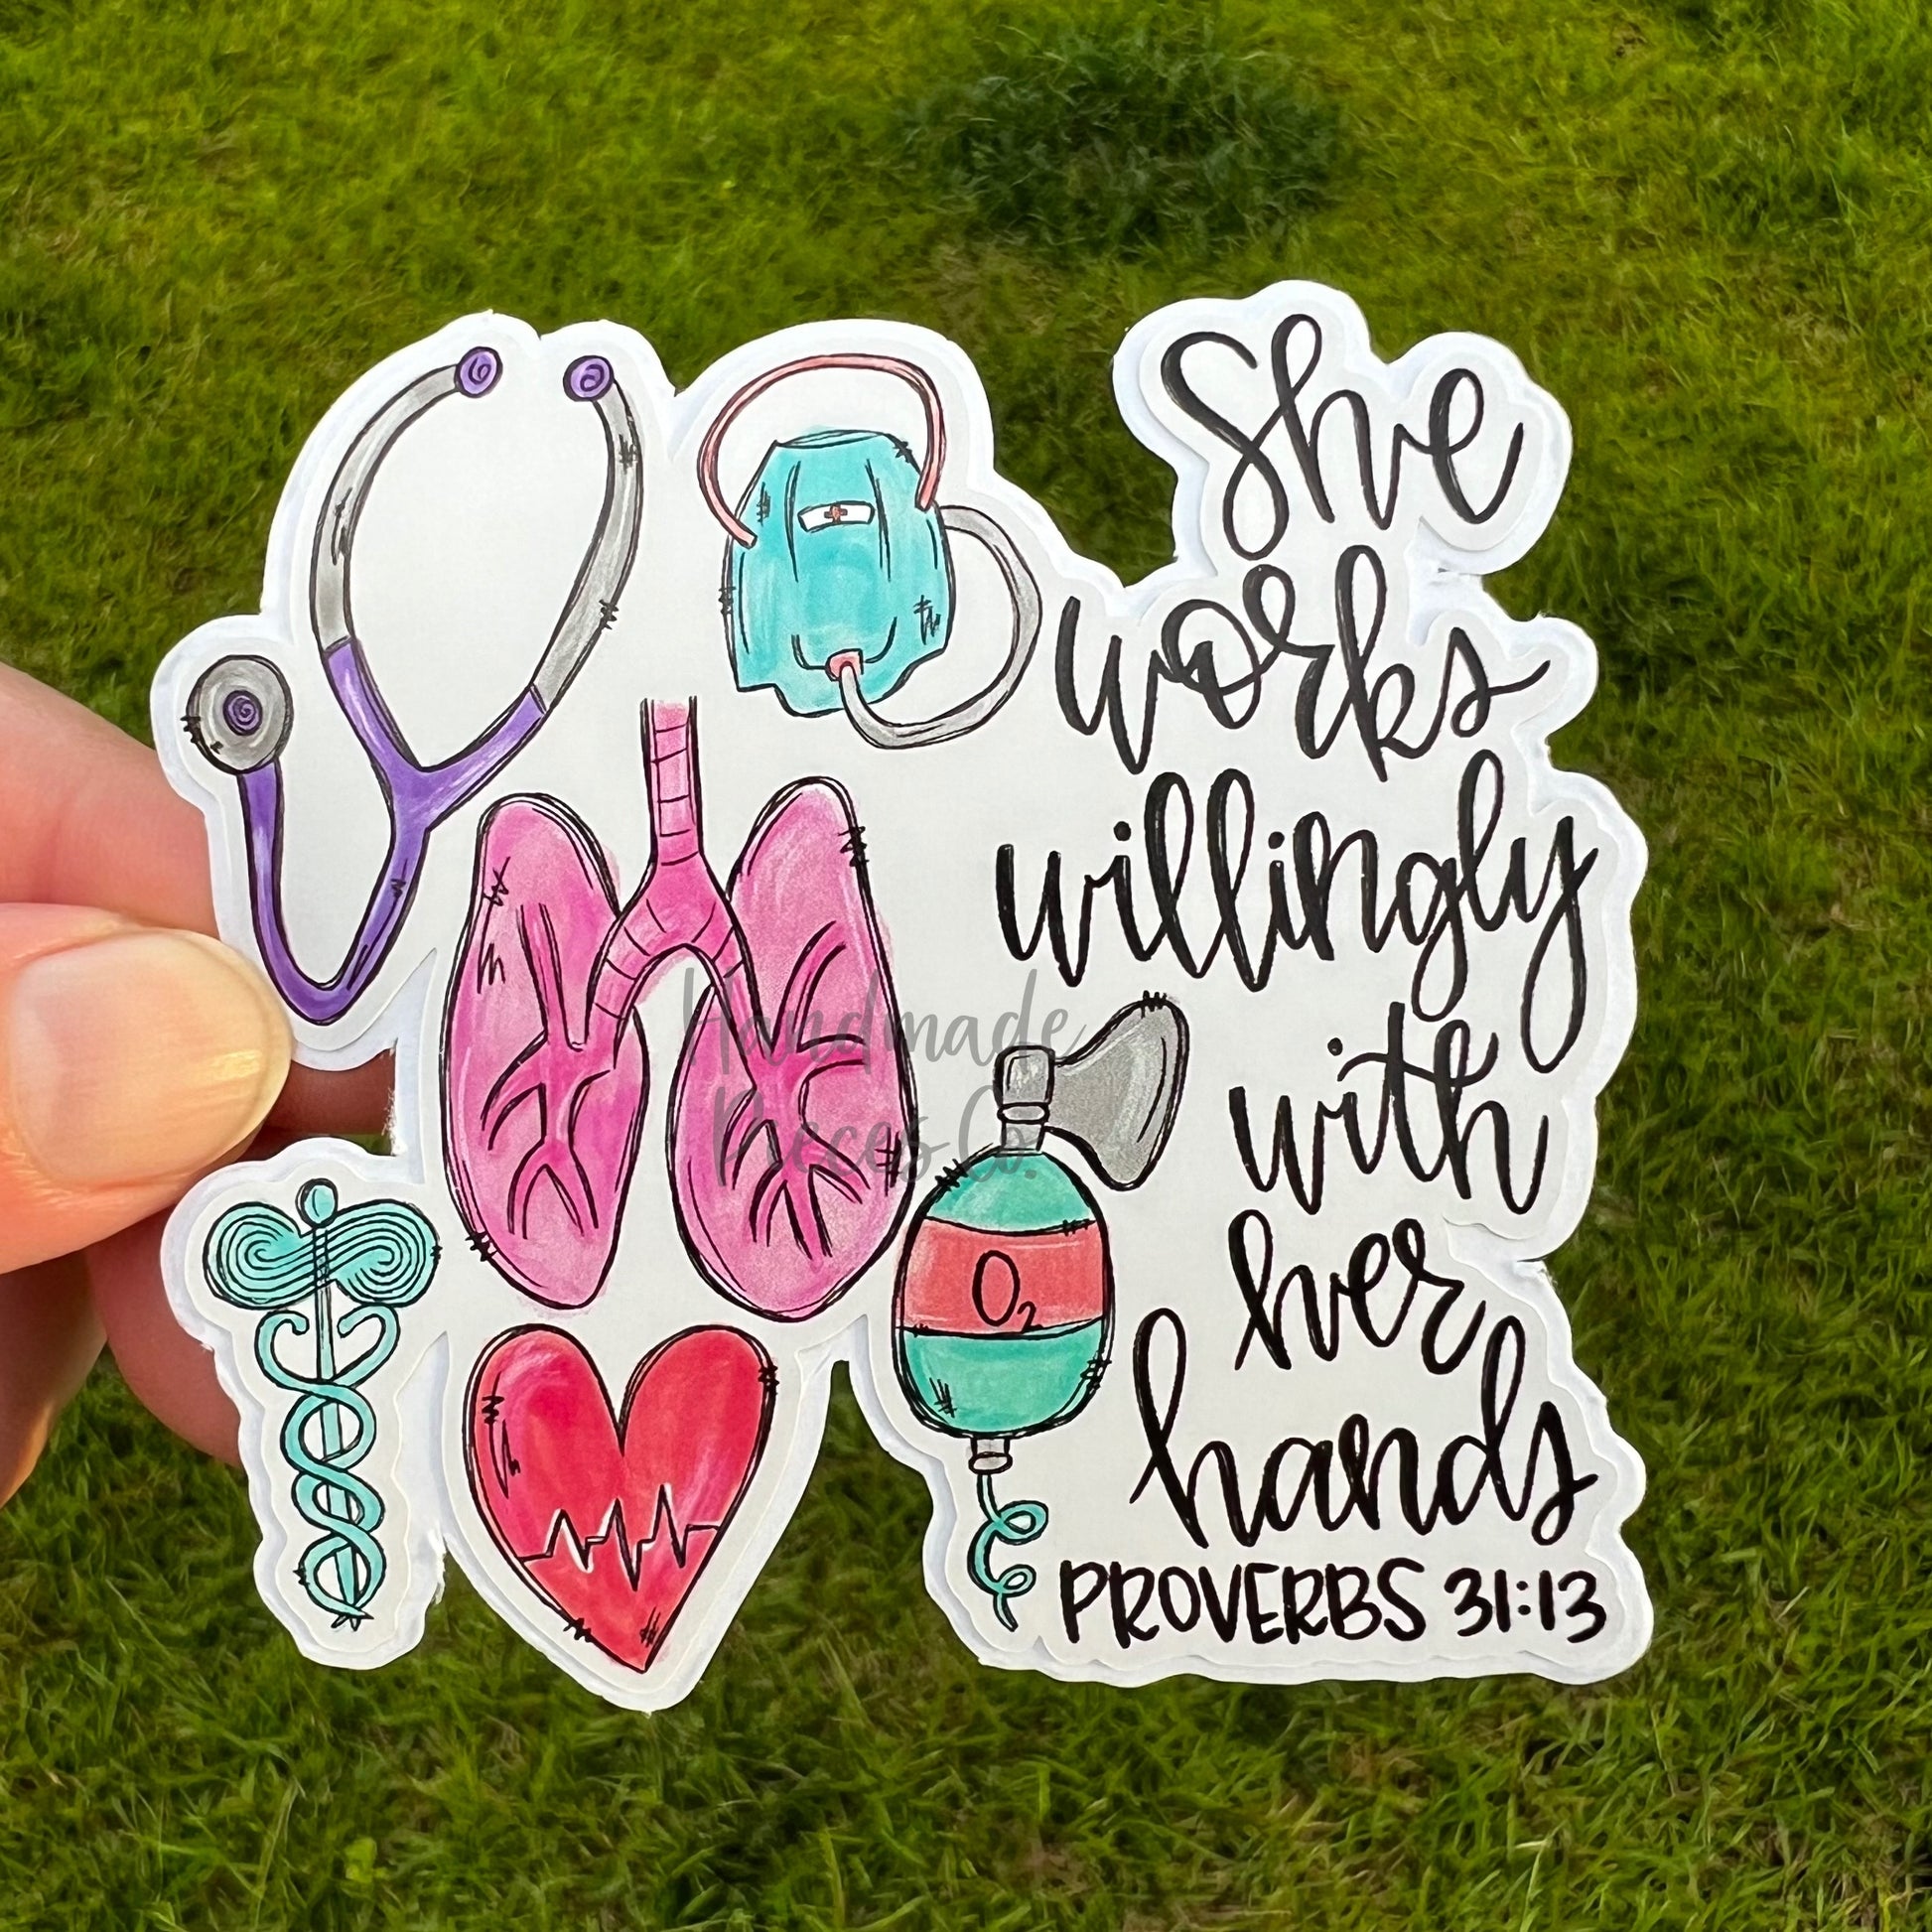 She
works
willingly
with
her
hands
PROVERBS 31:13
O₂
Handmade
Pieces Co.